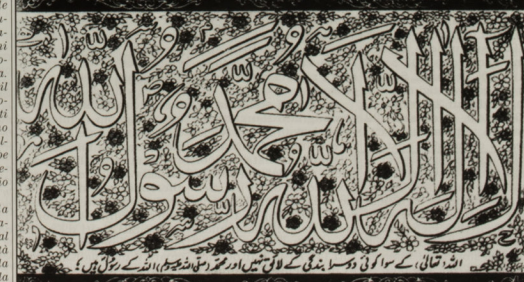 لا اله الا الله محمد رسول الله
اللہ (تعالیٰ) کے سوا کوئی دوسرا بندگی کے لائق نہیں اور محمد (صلی اللہ علیہ وسلم) اللہ کے رسول ہیں ؛